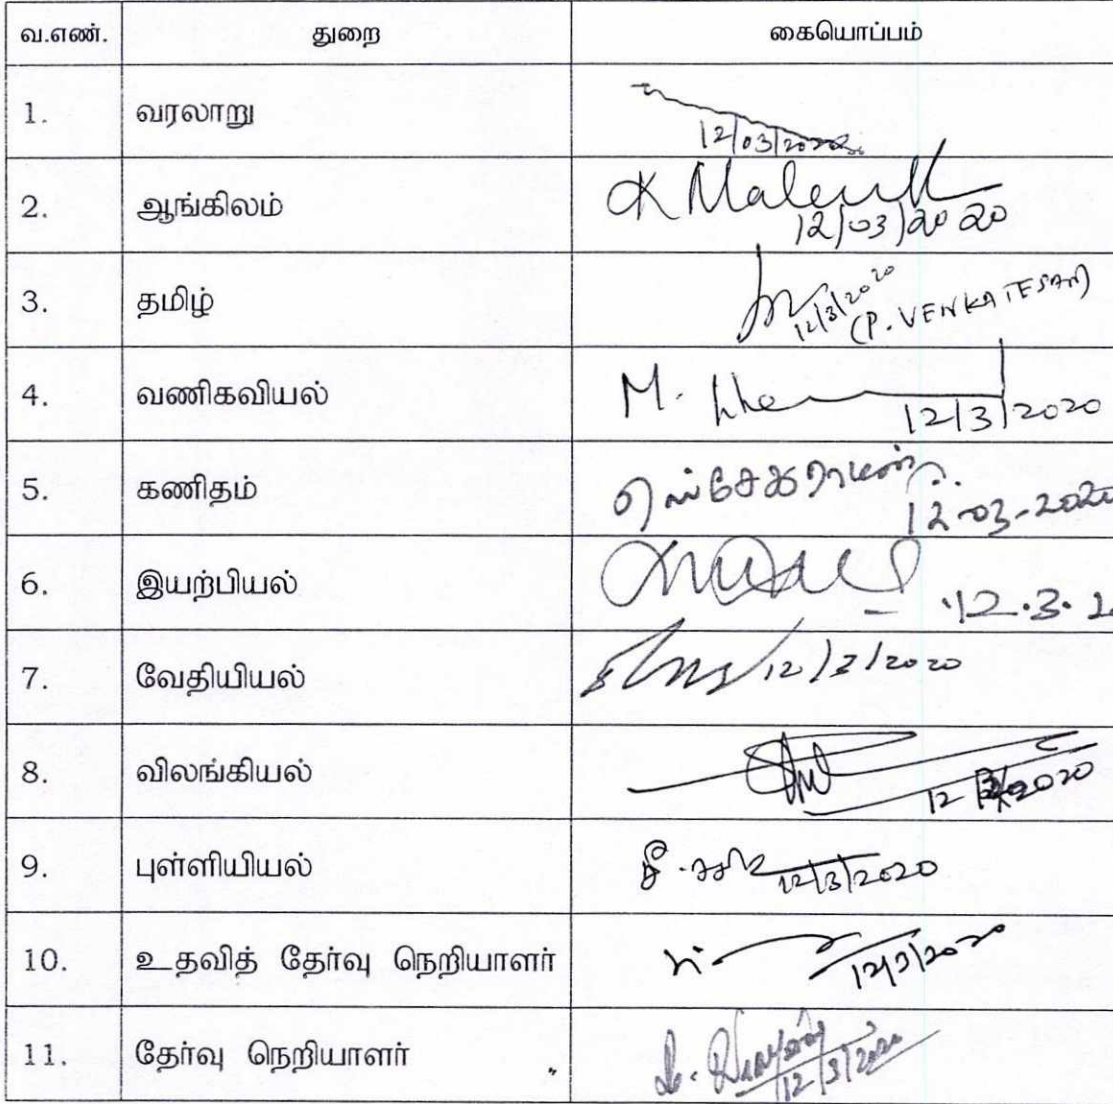 வ.எண். துறை கையொப்பம்
1. வரலாறு
12/03/2020
2. ஆங்கிலம்
12/03/2020
3. தமிழ்
12/3/2020
(P. VENKATESAN)
4. வணிகவியல் M.
12/3/2020
5. கணிதம்
12-03-2020
6. இயற்பியல்
12.3.2
7. வேதியியல் 12/3/2020
8. விலங்கியல்
12/3/2020
9. புள்ளியியல்
12/3/2020
10. உதவித் தேர்வு நெறியாளர்
12/3/2020
11. தேர்வு நெறியாளர்
12/3/2020